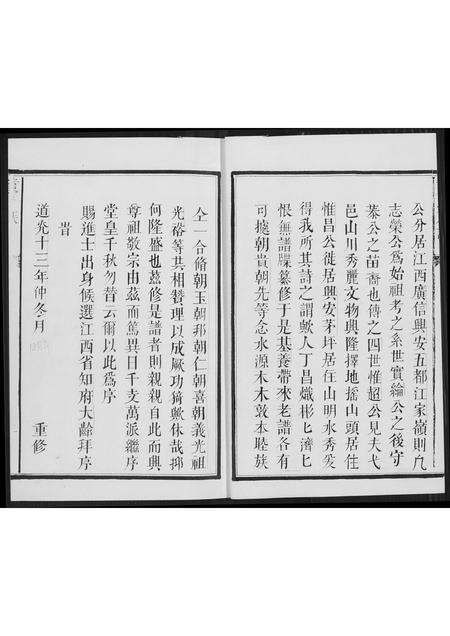 公分居江西廣信興安五都江家嶺則凢
志榮公爲始祖考之系世實綸公之後守
泰公之苗裔也傳之四世惟超公見夫弋
邑山川秀麗文物興隆擇地搖山頭居住
惟昌公徙居興安茅坪居在山明水秀爰
得我所其詩之謂歟人丁昌熾彬匕濟匕
恨無譜牒纂修于是基養帶來老譜各有
可據朝貴朝先等念水源木本敦本睦族
仝一合脩朝玉朝邦朝仁朝喜朝義光祖
光裕等共相賛理以成厥功猗歟休哉抑
何隆盛也茲修是譜者則親親自此而興
尊祖敬宗由茲而篤異日千支萬派繼序
堂皇千秋勿替云爾以此爲序
賜進士出身候選江西省知府大齡拜序
旹
道光十三年仲冬月 重修